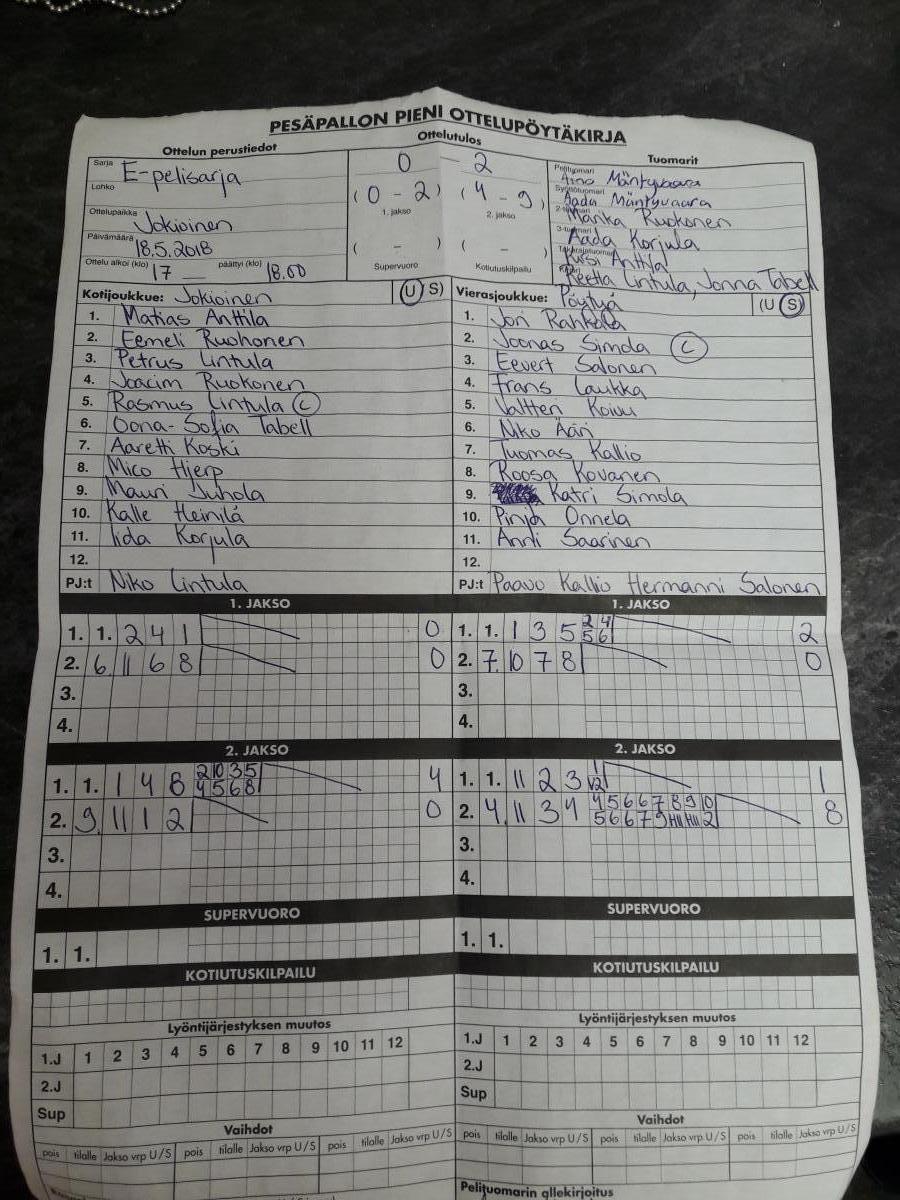 PESÄPALLON PIENI OTTELUPÖYTÄKIRJA
Ottelun perustiedot
Ottelutulos
Tuomarit
Sarja E-pelisarja
Lohko
Ottelupaikka Jokioinen
Päivämäärä 18.5.2018
Ottelu alkoi (klo) 17 — päättyi (klo) 18.00
0 — 2
(0 - 2) (4 - 9)
1. jakso 2. jakso
( - ) ( - )
Supervuoro Kotiutuskilpailu
Pelituomari Aino Mäntyvaara
Syöttötuomari Aada Mäntyvaara
2-tuomari Marika Ruokonen
3-tuomari Aada Korjula
Takarajatuomari Kirsi Anttila
Reetta Lintula, Jonna Tabell
Kotijoukkue: Jokioinen (U S)
1. Matias Anttila
2. Eemeli Ruohonen
3. Petrus Lintula
4. Joacim Ruokonen
5. Rasmus Lintula C
6. Oona-Sofia Tabell
7. Aaretti Koski
8. Mico Hjerp
9. Mauri Juhola
10. Kalle Heinilä
11. Iida Korjula
12.
PJ:t Niko Lintula
Vierasjoukkue: Pöytyä (U S)
1. Jori Rahkala
2. Joonas Simola C
3. Eevert Salonen
4. Frans Laukka
5. Valtteri Koivu
6. Niko Ääri
7. Tuomas Kallio
8. Roosa Kovanen
9. Katri Simola
10. Pinja Onnela
11. Anni Saarinen
12.
PJ:t Paavo Kallio Hermanni Salonen
1. JAKSO
1. 1. 2 4 1 0
2. 6. 11 6 8 0
3.
4.
1. JAKSO
1. 1. 1 3 5 2 4 2
5 6
2. 7. 10 7 8 0
3.
4.
2. JAKSO
1. 1. 1 4 8 2 10 3 5 4
4 5 6 8
2. 9. 11 1 2 0
3.
4.
2. JAKSO
1. 1. 11 2 3 1 1
2. 4. 11 3 4 4 5 6 6 7 8 9 10 8
5 6 6 7 9 2
3.
4.
SUPERVUORO
1. 1.
SUPERVUORO
1. 1.
KOTIUTUSKILPAILU
KOTIUTUSKILPAILU
Lyöntijärjestyksen muutos
1.J 1 2 3 4 5 6 7 8 9 10 11 12
2.J
Sup
Lyöntijärjestyksen muutos
1.J 1 2 3 4 5 6 7 8 9 10 11 12
2.J
Sup
Vaihdot
pois tilalle Jakso vrp U/S pois tilalle Jakso vrp U/S pois tilalle Jakso vrp U/S
Vaihdot
pois tilalle Jakso vrp U/S pois tilalle Jakso vrp U/S pois tilalle Jakso vrp U/S
Pelituomarin allekirjoitus